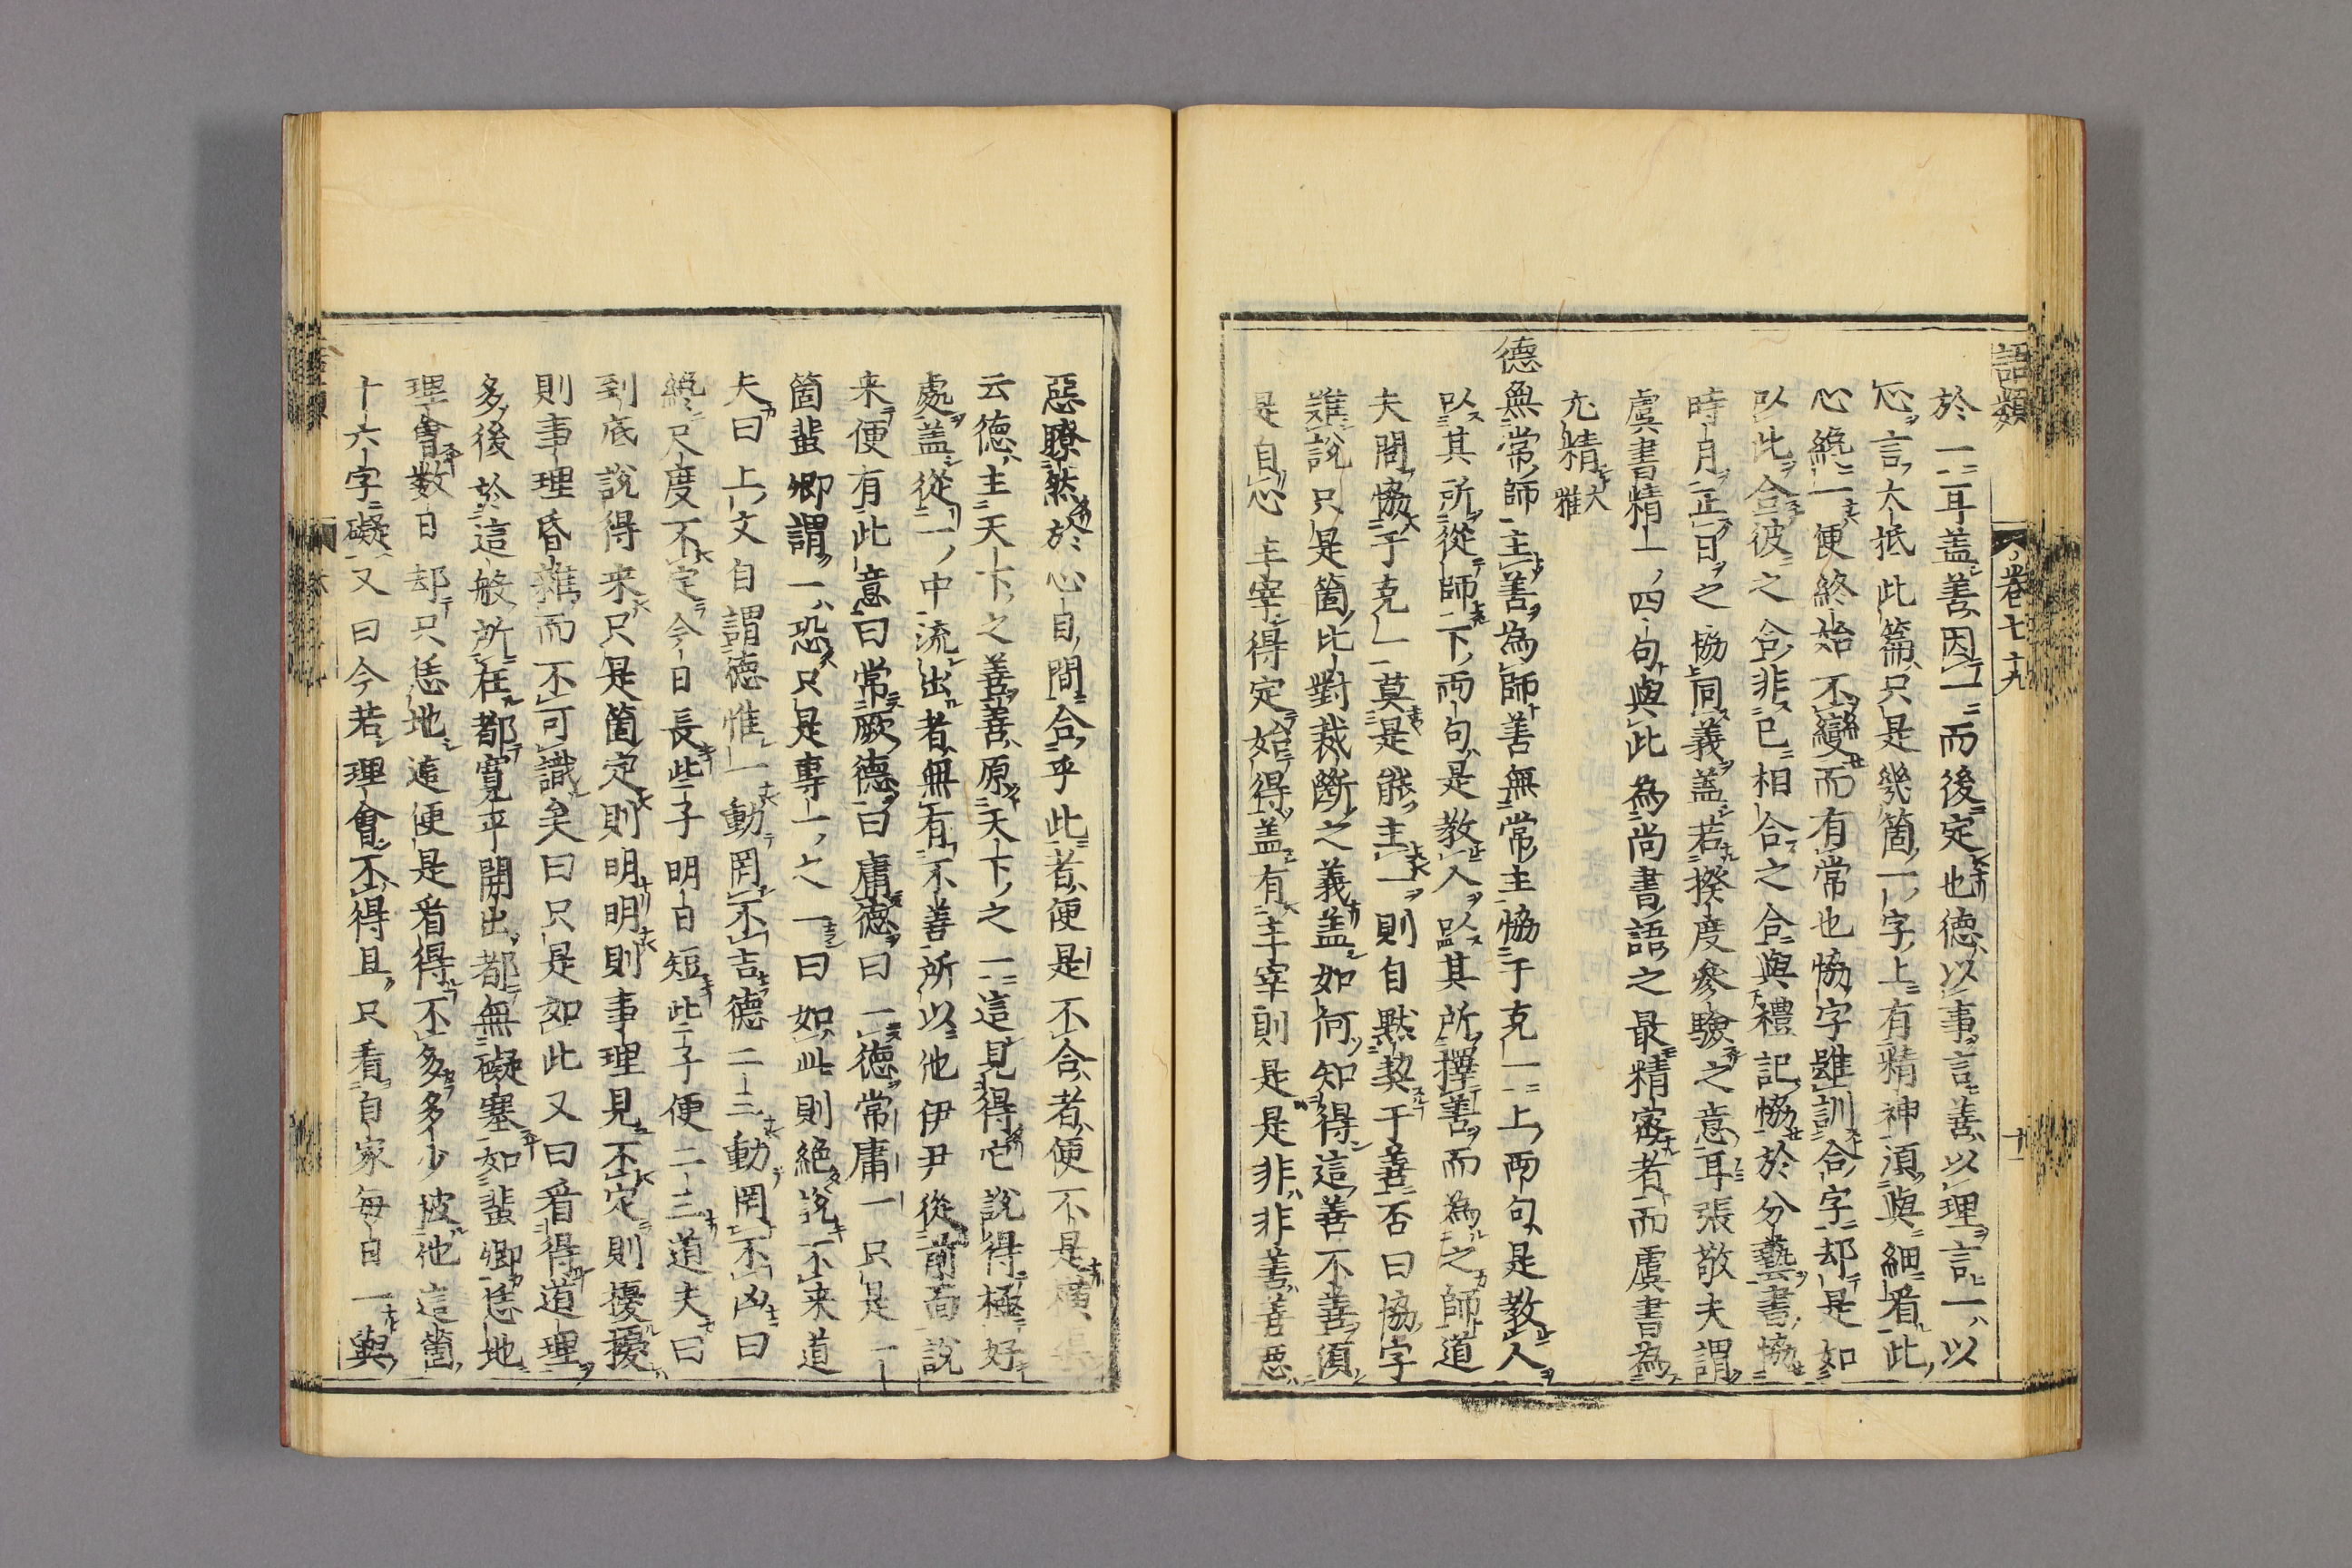 語類
卷七十九
十一
於一耳蓋善因一而後定也德以事言善以理言一以
心言大抵此篇只是幾箇一字上有精神須與細看此
心纔一便終始不變而有常也協字雖訓合字却是如
以此合彼之合非已相合之合與禮記協於分藝書協
時月正日之協同義蓋若揆度參驗之意耳張敬夫謂
虞書精一四句與此為尚書語之最精密者而虞書為
尤精 大雅
德無常師主善為師善無常主協于克一上兩句是教人
以其所從師下兩句是教人以其所擇善而為之師道
夫問協于克一莫是能主一則自默契于善否曰協字
雖說只是箇比對裁斷之義蓋如何知得這善不善須
是自心主宰得定始得蓋有主宰則是是非非善善惡
惡瞭然於心目間合乎此者便是不合者便不是橫
云德主天下之善善原天下之一這見得它說得極好
處蓋從一中流出者無有不善所以他伊尹從前面說
来便有此意曰常厥德曰庸德曰一德常庸一只是一
箇蜚卿謂一恐只是專一之一曰如此則絶說不来道
夫曰上文自謂德惟一動罔不吉德二三動罔不凶曰
纔尺度不定今日長些子明日短些子便二三道夫曰
到底說得来只是箇定則明明則事理見不定則擾擾
則事理昏雜而不可識矣曰只是如此又曰看得道理
多後於這般所在都寬平開出都無礙塞如蜚卿恁地
理會數日却只恁地這便是看得不多多少被他這箇
十六字礙又曰今若理會不得且只看自家每日一與